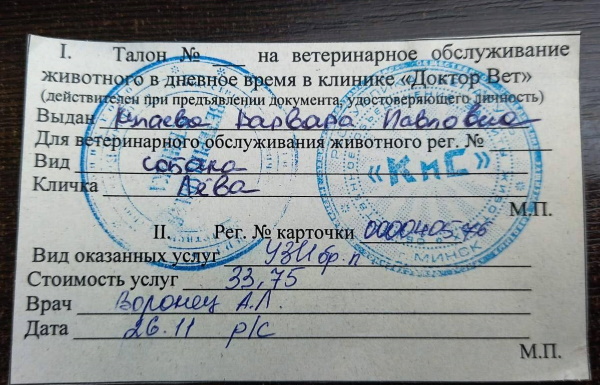 I. Талон № ___ на ветеринарное обслуживание
животного в дневное время в клинике «Доктор Вет»
(действителен при предъявлении документа, удостоверяющего личность)
Выдан Варвара Павловна
Для ветеринарного обслуживания животного рег. №
Вид собака
Кличка Дева
М.П.
«КиС»
г. МИНСК
II. Рег. № карточки 0000405
Вид оказанных услуг УЗИ бр. п
Стоимость услуг 33,75
Врач Воронец А.Л.
Дата 26.11 р/с
М.П.